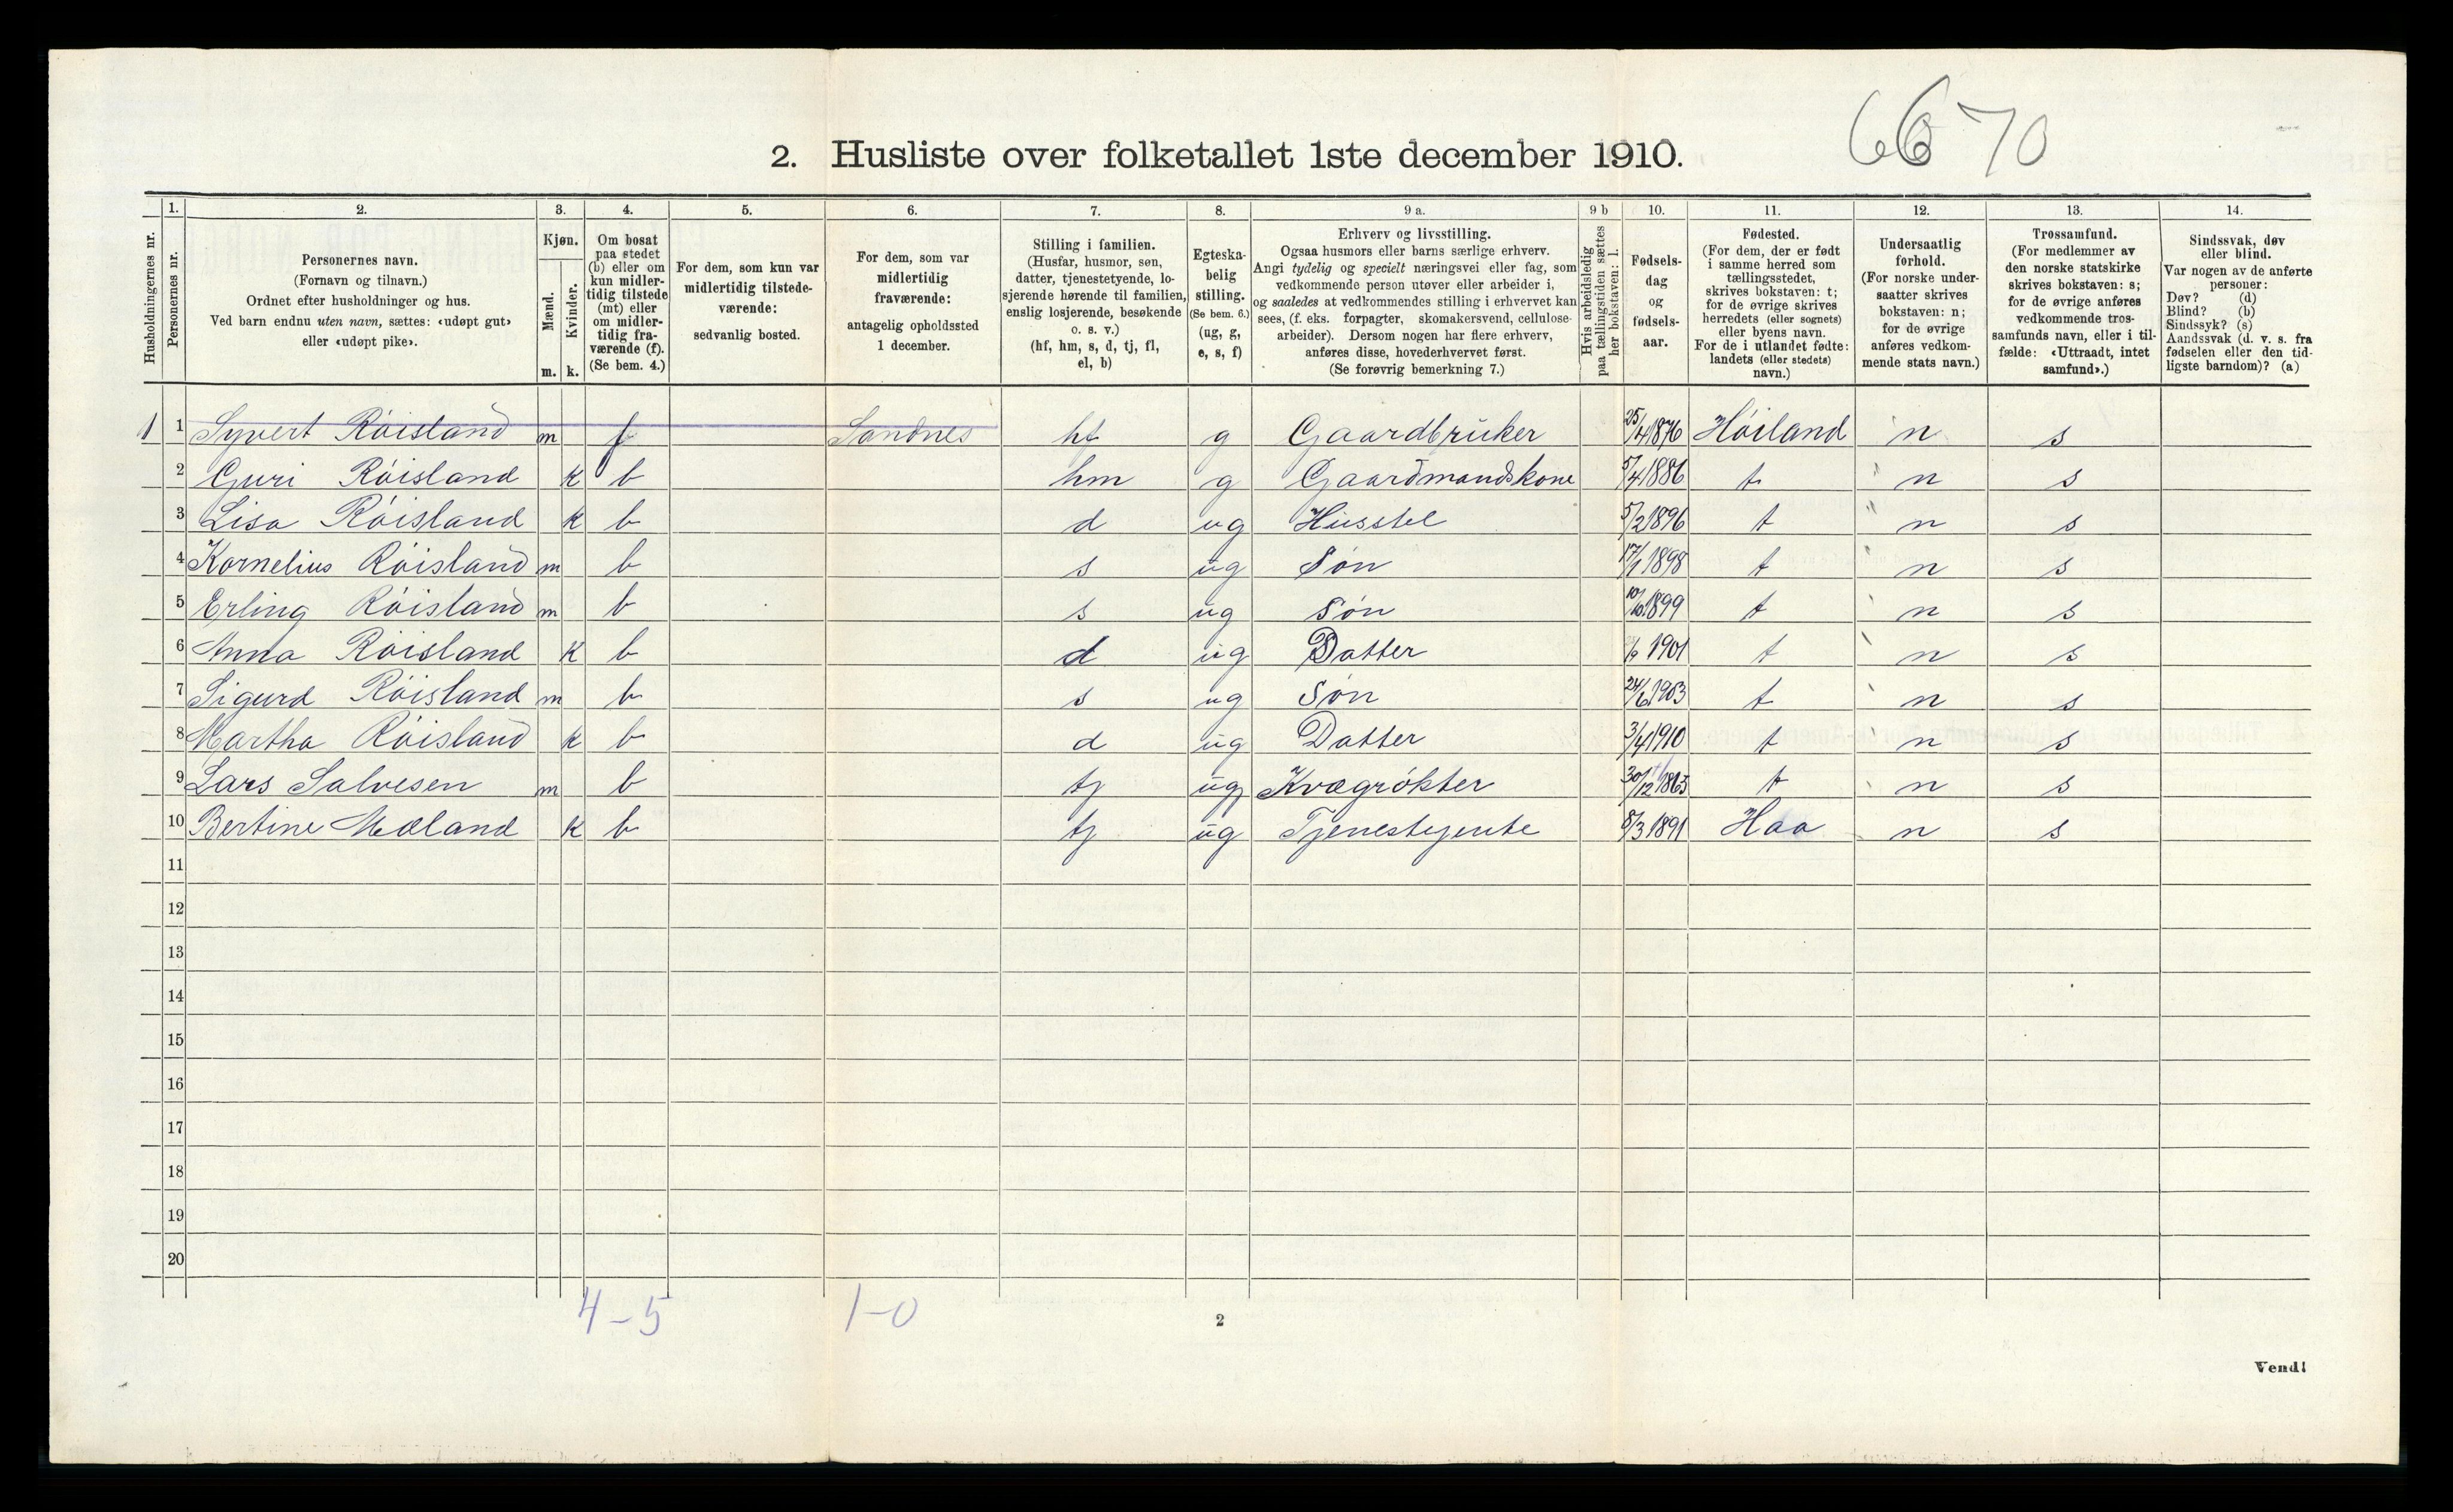 6670
2. Husliste over folketallet 1ste december 1910.
1. 2. 3. 4. 5. 6. 7. 8. 9 a. 9 b 10. 11. 12. 13. 14.
Husholdningernes nr.
Personernes nr.
Personernes navn.
(Fornavn og tilnavn.)
Ordnet efter husholdninger og hus.
Ved barn endnu uten navn, sættes: «udøpt gut»
eller «udøpt pike».
Kjøn.
Mænd.
Kvinder.
m. k.
Om bosat
paa stedet
(b) eller om
kun midler-
tidig tilstede
(mt) eller
om midler-
tidig fra-
værende (f).
(Se bem. 4.)
For dem, som kun var
midlertidig tilstede-
værende:
sedvanlig bosted.
For dem, som var
midlertidig
fraværende:
antagelig opholdssted
1 december.
Stilling i familien.
(Husfar, husmor, søn,
datter, tjenestetyende, lo-
sjerende hørende til familien,
enslig losjerende, besøkende
o. s. v.)
(hf, hm, s, d, tj, fl,
el, b)
Egteska-
belig
stilling.
(Se bem. 6.)
(ug, g,
e, s, f)
Erhverv og livsstilling.
Ogsaa husmors eller barns særlige erhverv.
Angi tydelig og specielt næringsvei eller fag, som
vedkommende person utøver eller arbeider i,
og saaledes at vedkommendes stilling i erhvervet kan
sees, (f. eks. forpagter, skomakersvend, cellulose-
arbeider). Dersom nogen har flere erhverv,
anføres disse, hovederhvervet først.
(Se forøvrig bemerkning 7.)
Hvis arbeidsledig
paa tællingstiden sættes
her bokstaven: l.
Fødsels-
dag
og
fødsels-
aar.
Fødested.
(For dem, der er født
i samme herred som
tællingsstedet,
skrives bokstaven: t;
for de øvrige skrives
herredets (eller sognets)
eller byens navn.
For de i utlandet fødte:
landets (eller stedets)
navn.)
Undersaatlig
forhold.
(For norske under-
saatter skrives
bokstaven: n;
for de øvrige
anføres vedkom-
mende stats navn.)
Trossamfund.
(For medlemmer av
den norske statskirke
skrives bokstaven: s;
for de øvrige anføres
vedkommende tros-
samfunds navn, eller i til-
fælde: «Uttraadt, intet
samfund».)
Sindssvak, døv
eller blind.
Var nogen av de anførte
personer:
Døv? (d)
Blind? (b)
Sindssyk? (s)
Aandssvak (d. v. s. fra
fødselen eller den tid-
ligste barndom)? (a)
1 1 Syvert Röisland m f Sandnes hf g Gaardbruker 25/4 1876 Höiland n s
2 Guri Röisland k b hm g Gaardmandskone 5/4 1886 t n s
3 Lisa Röisland k b d ug Husstel 5/2 1896 t n s
4 Kornelius Röisland m b s ug Søn 17/1 1898 t n s
5 Erling Röisland m b s ug Søn 10/10 1899 t n s
6 Anna Röisland k b d ug Datter 1901 t n s
7 Sigurd Röisland m b s ug Søn 24/6 1903 t n s
8 Martha Röisland k b d ug Datter 3/4 1910 t n s
9 Lars Salvesen m b tj ug Kvægrökter 30/12 1863 t n s
10 Bertine Mæland k b tj ug Tjenestejente 8/3 1891 Haa n s
11
12
13
14
15
16
17
18
19
20
4-5 1-0
2
Vend!